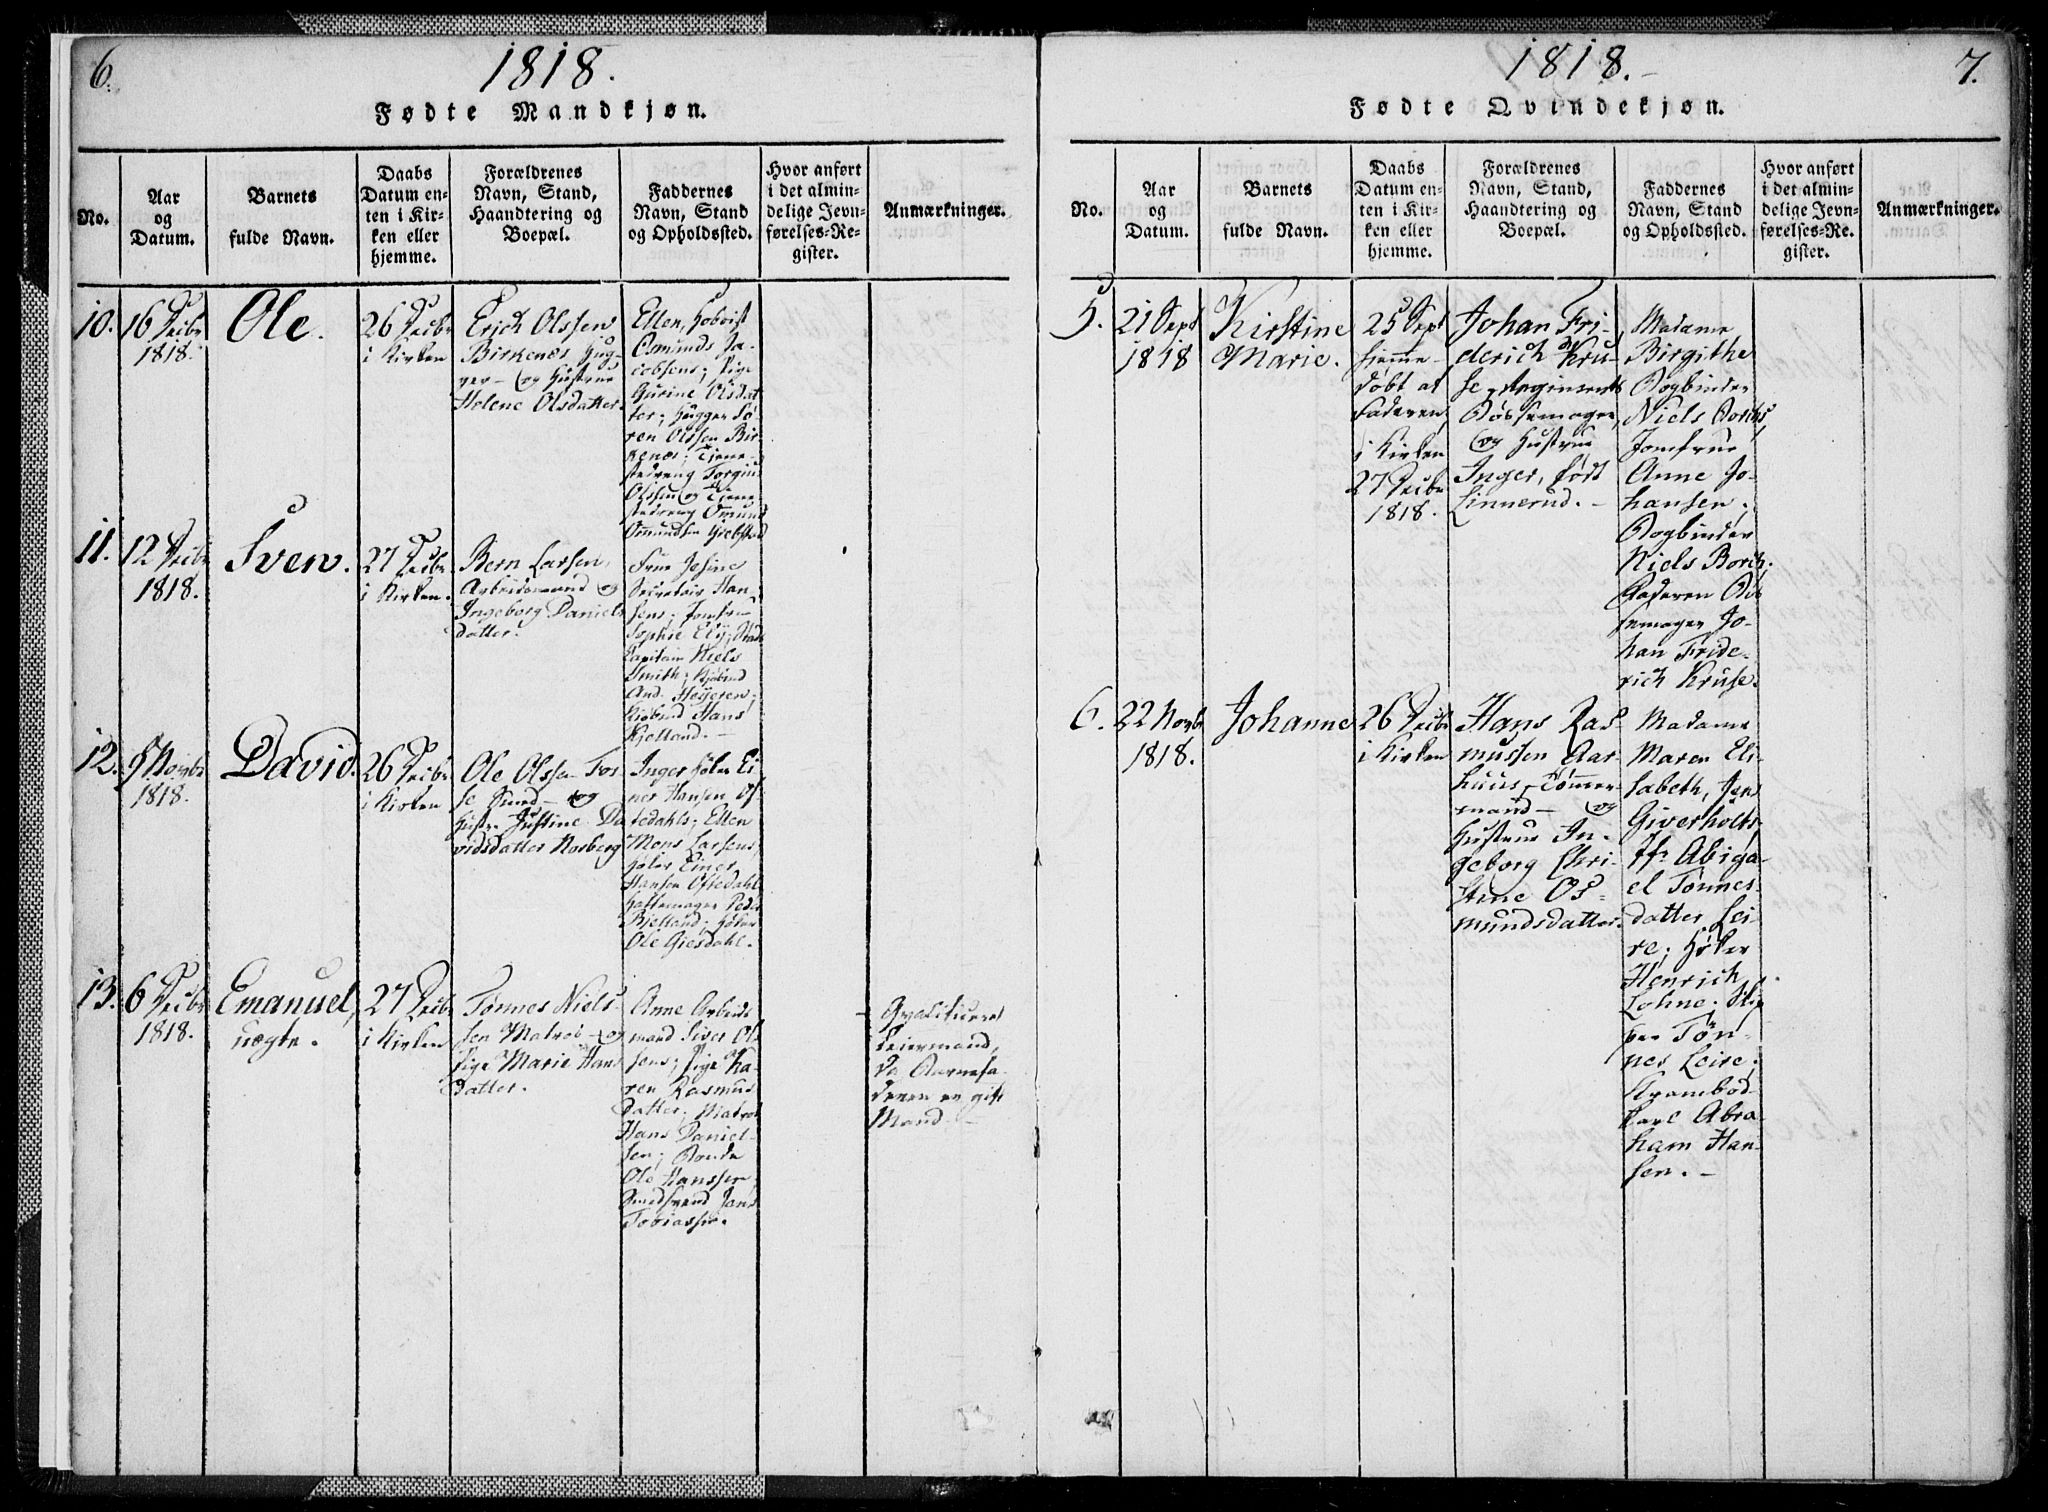 6.
1818.
Fødte Mandkjøn.
No.
Aar
og
Datum.
Barnets
fulde Navn.
Daabs
Datum en-
ten i Kir-
ken eller
hjemme.
Forældrenes
Navn, Stand,
Haandtering og
Boepæl.
Faddernes
Navn, Stand
og Opholdssted.
Hvor anført
i det almin-
delige Jevn-
førelses-Re-
gister.
Anmærkninger.
10.
16 Decbr
1818.
Ole.
26 Decbr
i Kirken
Erich Olssen
Birkenæs Hug-
ger - og Hustrue
Helene Olsdatter.
Ellen, Hoboist
Osmunds Ja-
cobsens; Pige
Gurine Olsdat
ter; Hugger Sø-
ren Olssen Bir-
kenæs; Tjene-
stedreng Torgius
Olssen og Tjene-
stedreng Omund
Omundsen
11.
12 Decbr
1818.
Sven.
27 Decbr
i Kirken.
Bern Larsen,
Arbeidsmand og
Ingeborg Daniels
datter.
Frue Jesine
Secretair Han-
sens; Jomfrue
Sophie
Capitain Niels
Smith; Kjøbmd
And. Heyeren;
Kiøbmd Hans
Kjelland. -
12.
9 Novbr
1818.
David.
26 Decbr
i Kirken
Ole Olssen Fos-
se Smed - og
Hustr. Justine Da
vidsdatter Norberg
Inger Høker Ei-
ner Hansen Of-
tedahls; Ellen
Mons Larsens,
Høker Einer
Hansen Oftedahl
Hattemager Peder
Bjelland; Høker
Ole Giesdahl.
13.
6 Decbr
1818.
Emanuel,
uægte.
27 Decbr
i Kirken
Tønnes Niels-
sen Matros - og
Pige Marie Hans
datter.
Anne Arbeids
mand Siver Ol
sens; Pige Ka-
ren Rasmus
datter; Matros
Hans Daniel-
sen; Bonde
Ole Hanssen
Smedsvend Jens
Tobiassen.
Qvalificeret
Leiermaal,
da Barnefa-
deren er gift
Mand. -
1818. -
7.
Fødte Qvindekjøn.
No.
Aar
og
Datum.
Barnets
fulde Navn.
Daabs
Datum en-
ten i Kir-
ken eller
hjemme.
Forældrenes
Navn, Stand,
Haandtering og
Boepæl.
Faddernes
Navn, Stand
og Opholdssted.
Hvor anført
i det almin-
delige Jevn-
førelses-Re-
gister.
Anmærkninger.
5.
21 Sept
1818
Kirstine
Marie.
25 Sept
hjemme-
døbt af
Faderen,
i Kirken
27 Decbr
1818.
Johan Fri-
derich Kru-
se, Regiments
Bøssemager,
og Hustrue
Inger, født
Linnerud. -
Madame
Birgithe
Bogbinder
Niels Borchs,
Jomfrue
Anne Jo-
hansen;
Bogbinder
Niels Borch.
Faderen Bøs
semager Jo-
han Fride-
rich Kruse.
6.
22 Novbr
1818.
Johanne
26 Decbr
i Kirken
Hans Ras-
mussen Aar-
huus, Tømmer-
mand - og
Hustrue In-
geborg Chri-
stine Os-
mundsdatter.
Madame
Maren Eli-
sabeth, Jens
Giverholts
Jfr. Abiga-
el Tønnes-
datter Lei-
re; Høker
Henrich
Lohne; Skip
per Tøn-
nes Leire;
Krambod-
karl Abra-
ham Han-
sen. -